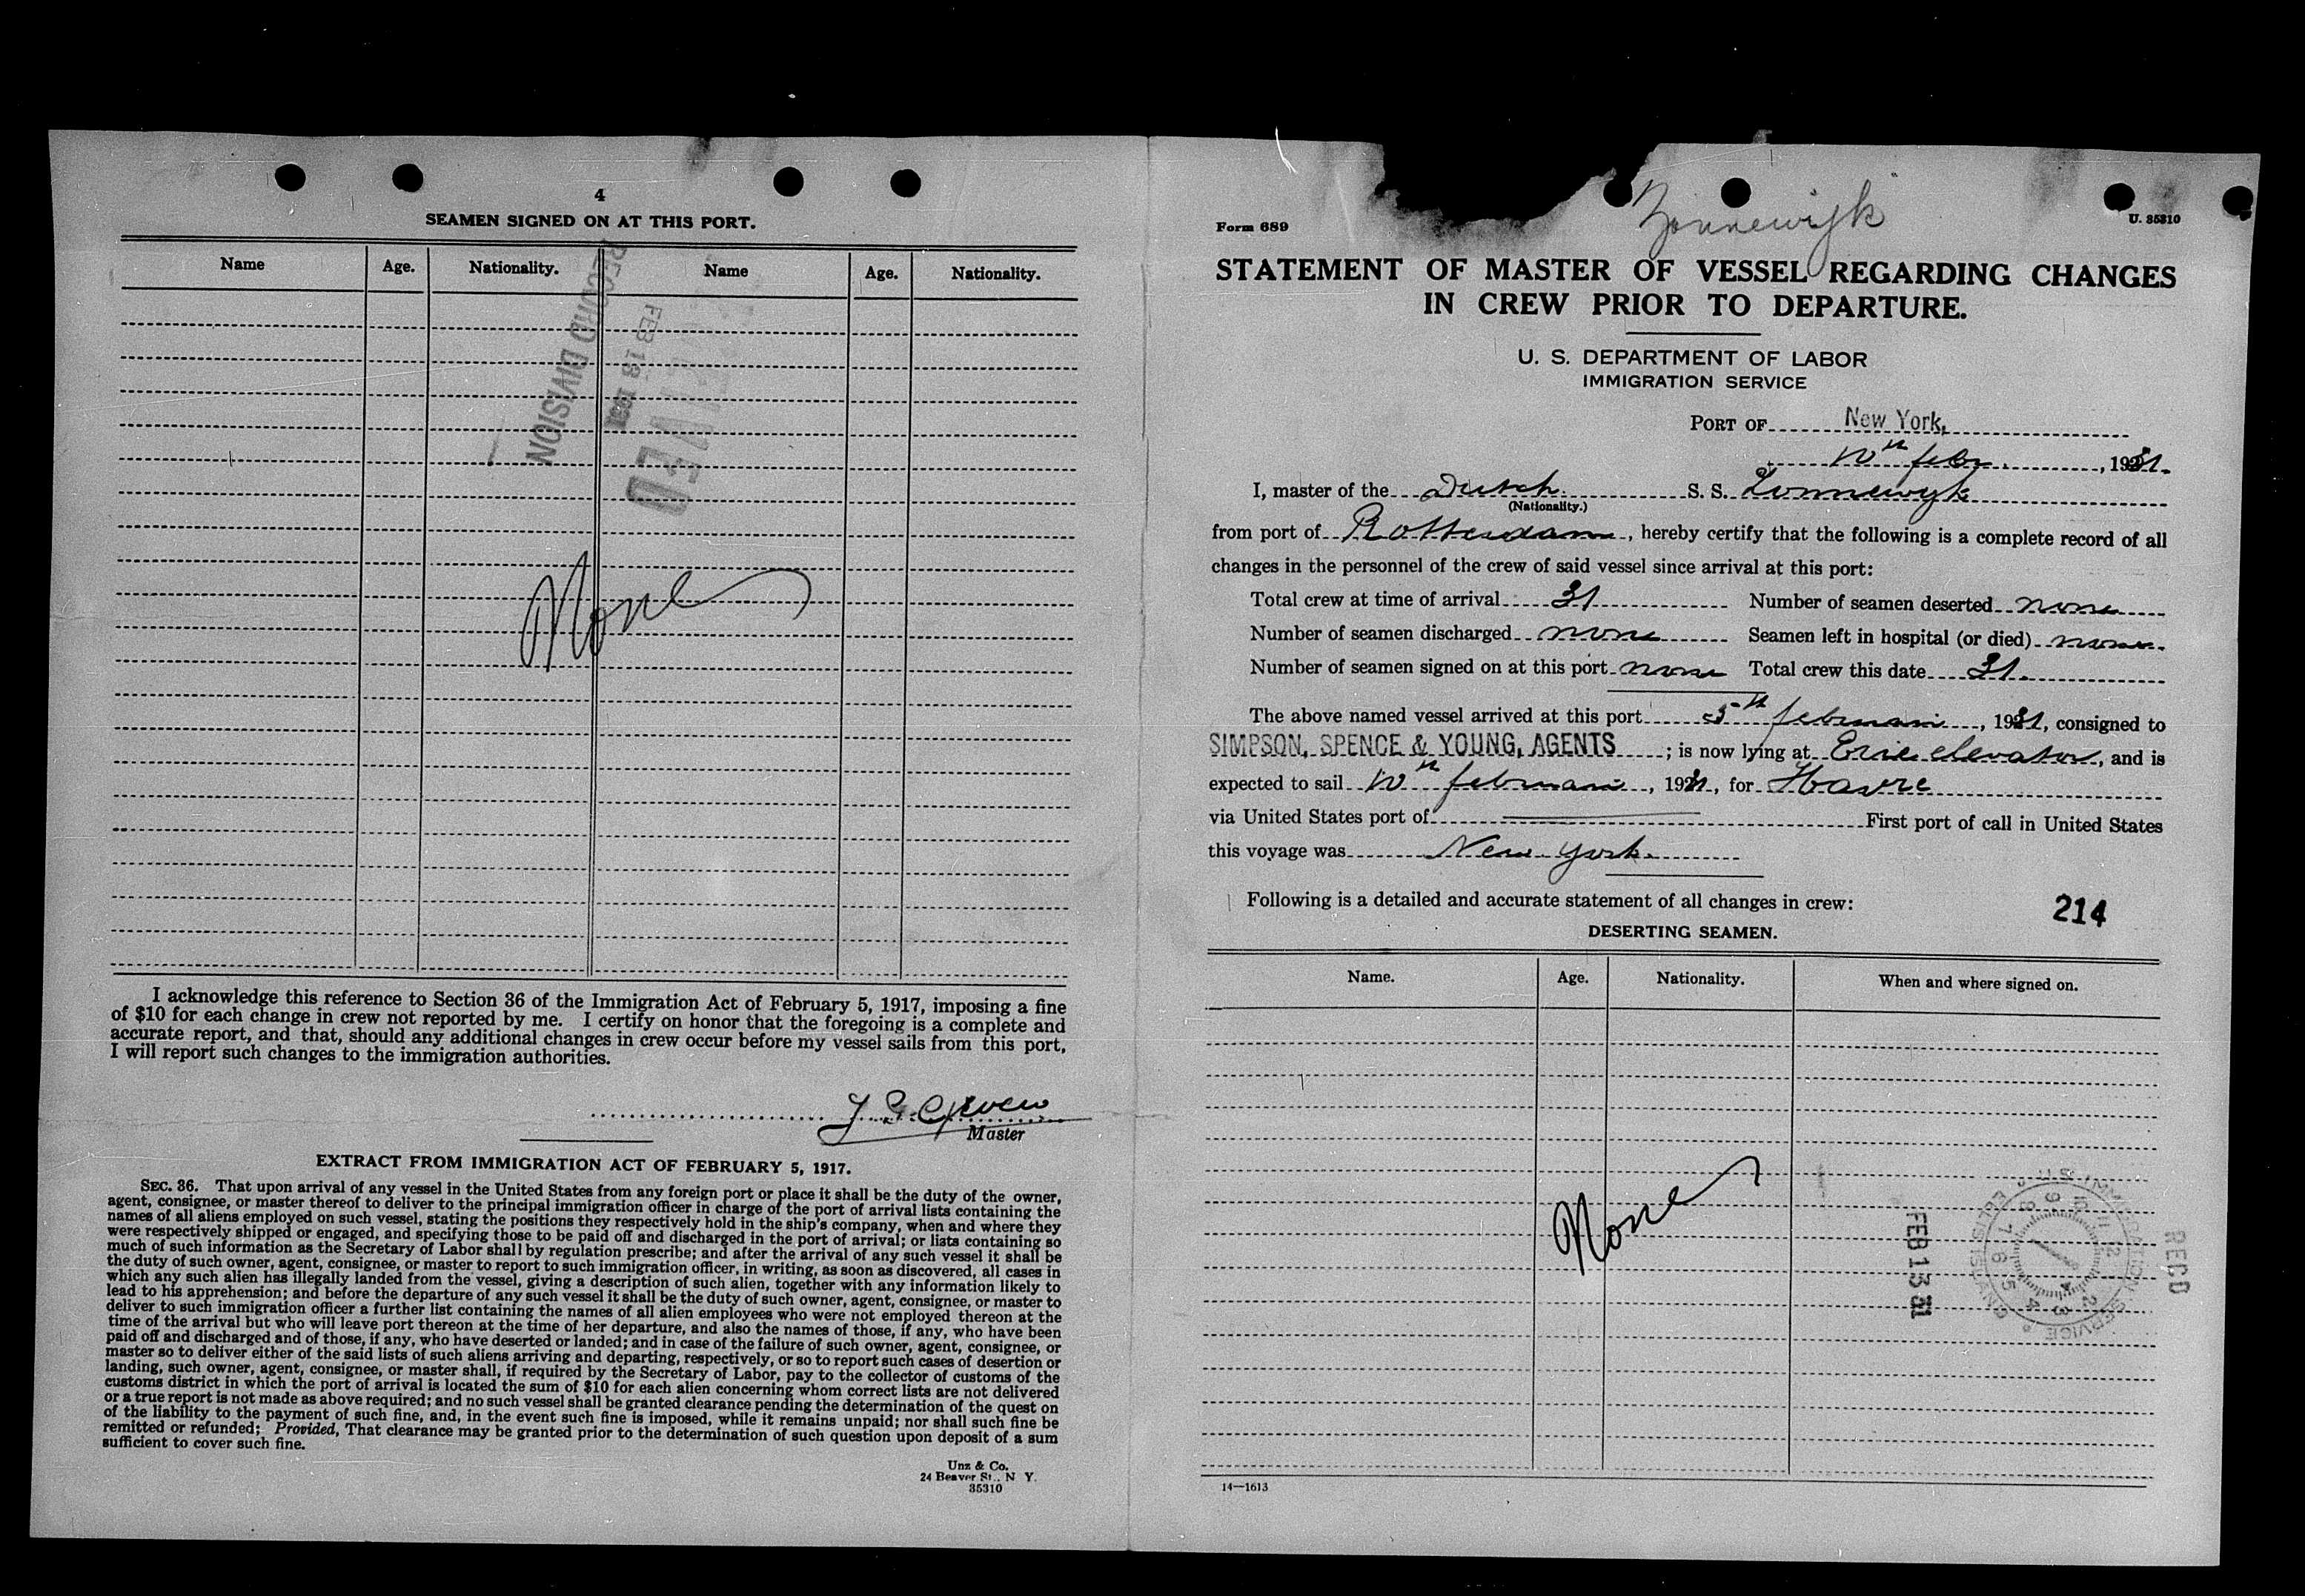 4
SEAMEN SIGNED ON AT THIS PORT.
Name Age. Nationality. Name Age. Nationality.
RECORD DIVISION
FEB 13 1931
RECEIVED
None
I acknowledge this reference to Section 36 of the Immigration Act of February 5, 1917, imposing a fine
of $10 for each change in crew not reported by me. I certify on honor that the foregoing is a complete and
accurate report, and that, should any additional changes in crew occur before my vessel sails from this port,
I will report such changes to the immigration authorities.
Master
EXTRACT FROM IMMIGRATION ACT OF FEBRUARY 5, 1917.
SEC. 36. That upon arrival of any vessel in the United States from any foreign port or place it shall be the duty of the owner,
agent, consignee, or master thereof to deliver to the principal immigration officer in charge of the port of arrival lists containing the
names of all aliens employed on such vessel, stating the positions they respectively hold in the ship's company, when and where they
were respectively shipped or engaged, and specifying those to be paid off and discharged in the port of arrival; or lists containing so
much of such information as the Secretary of Labor shall by regulation prescribe; and after the arrival of any such vessel it shall be
the duty of such owner, agent, consignee, or master to report to such immigration officer, in writing, as soon as discovered, all cases in
which any such alien has illegally landed from the vessel, giving a description of such alien, together with any information likely to
lead to his apprehension; and before the departure of any such vessel it shall be the duty of such owner, agent, consignee, or master to
deliver to such immigration officer a further list containing the names of all alien employees who were not employed thereon at the
time of the arrival but who will leave port thereon at the time of her departure, and also the names of those, if any, who have been
paid off and discharged and of those, if any, who have deserted or landed; and in case of the failure of such owner, agent, consignee, or
master so to deliver either of the said lists of such aliens arriving and departing, respectively, or so to report such cases of desertion or
landing, such owner, agent, consignee, or master shall, if required by the Secretary of Labor, pay to the collector of customs of the
customs district in which the port of arrival is located the sum of $10 for each alien concerning whom correct lists are not delivered
or a true report is not made as above required; and no such vessel shall be granted clearance pending the determination of the quest on
of the liability to the payment of such fine, and, in the event such fine is imposed, while it remains unpaid; nor shall such fine be
remitted or refunded; Provided, That clearance may be granted prior to the determination of such question upon deposit of a sum
sufficient to cover such fine.
Unz & Co.
24 Beaver St., N Y.
35310
Zonnewijk
Form 689 U. 35310
STATEMENT OF MASTER OF VESSEL REGARDING CHANGES
IN CREW PRIOR TO DEPARTURE.
U. S. DEPARTMENT OF LABOR
IMMIGRATION SERVICE
PORT OF New York,
10th febr. , 1931.
I, master of the Dutch S. S. Zonnewyk
(Nationality.)
from port of Rotterdam , hereby certify that the following is a complete record of all
changes in the personnel of the crew of said vessel since arrival at this port:
Total crew at time of arrival 31 Number of seamen deserted none
Number of seamen discharged none Seamen left in hospital (or died) none.
Number of seamen signed on at this port none Total crew this date 31.
The above named vessel arrived at this port 5th februari , 1931, consigned to
SIMPSON, SPENCE & YOUNG, AGENTS ; is now lying at Erie elevator, and is
expected to sail 10th februari , 1931, for Havre
via United States port of First port of call in United States
this voyage was New York.
Following is a detailed and accurate statement of all changes in crew:
214
DESERTING SEAMEN.
Name. Age. Nationality. When and where signed on.
None
FEB 13 31
U.S. IMMIGRATION SERVICE ELLIS ISLAND
1 2 3 4 5 6 7 8 9 10 11 12
REC'D
14—1613